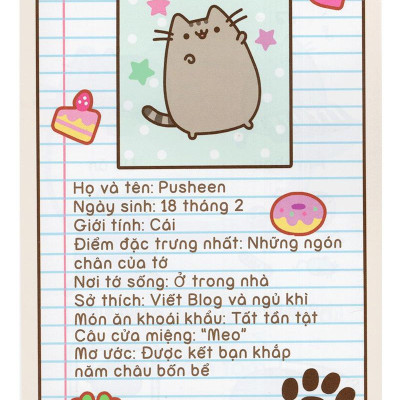 Họ và tên: Pusheen
Ngày sinh: 18 tháng 2
Giới tính: Cái
Điểm đặc trưng nhất: Những ngón
chân của tớ
Nơi tớ sống: Ở trong nhà
Sở thích: Viết Blog và ngủ khì
Món ăn khoái khẩu: Tất tần tật
Câu cửa miệng: "Meo"
Mơ ước: Được kết bạn khắp
năm châu bốn bể